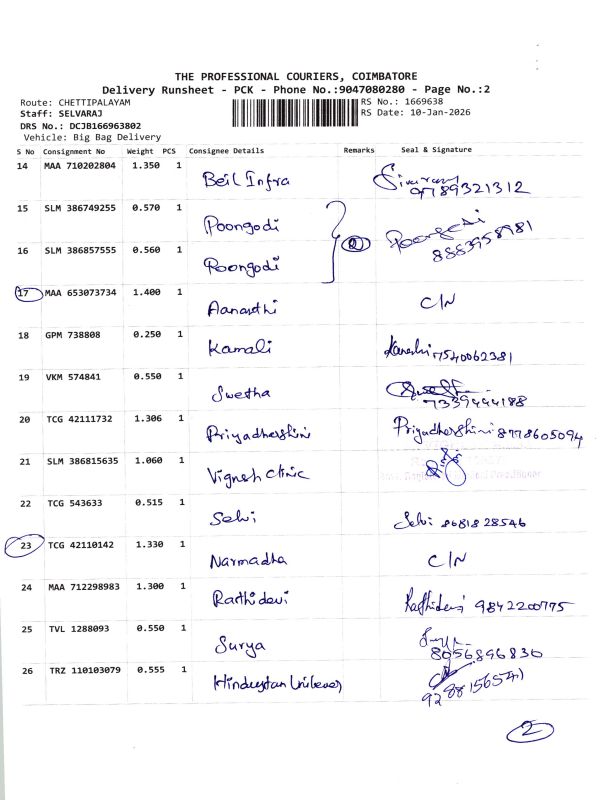 THE PROFESSIONAL COURIERS, COIMBATORE
Delivery Runsheet - PCK - Phone No.:9047080280 - Page No.:2
Route: CHETTIPALAYAM
Staff: SELVARAJ
DRS No.: DCJB166963802
Vehicle: Big Bag Delivery
RS No.: 1669638
RS Date: 10-Jan-2026
S No Consignment No Weight PCS Consignee Details Remarks Seal & Signature
14 MAA 710202804 1.350 1 Beil Infra
9789321312
15 SLM 386749255 0.570 1 Poongodi
16 SLM 386857555 0.560 1 Poongodi
② Poongodi
8883958981
17 MAA 653073734 1.400 1 Aananthi C/N
18 GPM 738808 0.250 1 Kamali 7540062381
19 VKM 574841 0.550 1 Swetha
7339444188
20 TCG 42111732 1.306 1 Priyadharshini Priyadharshini 8778605094
21 SLM 386815635 1.060 1 Vignesh Clinic
22 TCG 543633 0.515 1 Selvi Selvi 8681828546
23 TCG 42110142 1.330 1 Narmadha C/N
24 MAA 712298983 1.300 1 Rathidevi Rathidevi 9842200775
25 TVL 1288093 0.550 1 Surya
8056896830
26 TRZ 110103079 0.555 1 Hindustan Unilever
9288156541
2